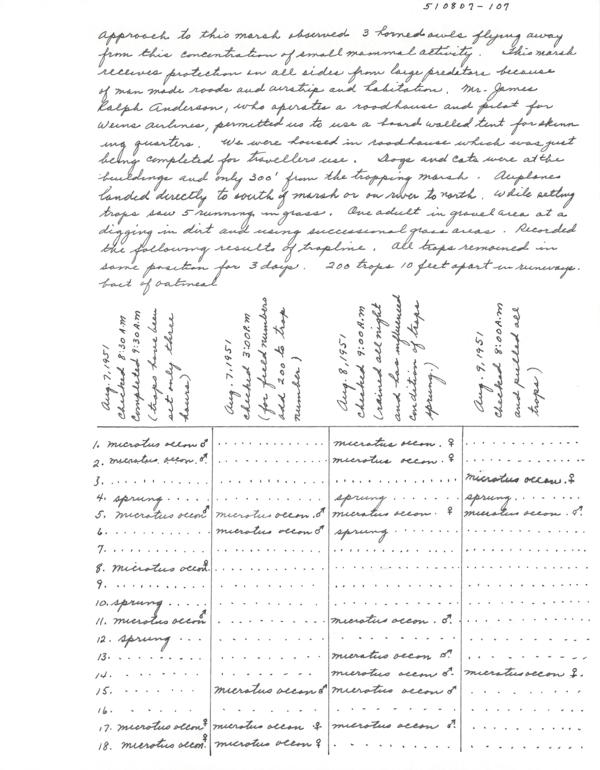 510807-107
approach to this marsh observed 3 horned owls flying away
from this concentration of small mammal activity. This marsh
receives protection on all sides from large predators because
of man made roads and airstrip and habitation. Mr. James
Ralph Anderson, who operates a roadhouse and pilot for
Wiens Airlines, permitted us to use a board walled tent for skinn
ing quarters. We were housed in roadhouse which was just
being completed for travellers use. Dogs and cats were at the
buildings and only 300' from the trapping marsh. Airplanes
landed directly to south of marsh or on river to north. While setting
traps saw 5 running in grass. One adult in gravel area at a
digging in dirt and using successional grass areas. Recorded
the following results of trapline. All traps remained in
same position for 3 days. 200 traps 10 feet apart in runways.
bait of oatmeal
Aug. 7, 1951
checked 8:30 A.M
completed 9:30 A.M
(traps have been
set only three
hours)
Aug. 7, 1951
checked 3:00 P.M
(for field numbers
add 200 to trap
number.)
Aug. 8, 1951
checked 9:00 A.M
(rained all night
and has influenced
condition of traps
sprung.)
Aug. 9, 1951
checked 8:00 A.M
and pulled all
traps)
1. microtus oecon ♂ .......... microtus oecon. ♀ ..........
2. microtus oecon. ♂ .......... microtus oecon. ♀ ..........
3. .......... .......... .......... microtus oecon. ♀
4. sprung .... .......... sprung ...... sprung ......
5. microtus oecon ♂ microtus oecon. ♂ microtus oecon. ♀ microtus oecon. ♂
6. .......... microtus oecon ♂ sprung ...... ..........
7. .......... .......... .......... ..........
8. microtus oecon. ♀ .......... .......... ..........
9. .......... .......... .......... ..........
10. sprung .... .......... .......... ..........
11. microtus oecon ♂ .......... microtus oecon. ♂ ..........
12. sprung ... .......... .......... ..........
13. .......... .......... microtus oecon ♂ ..........
14. .......... .......... microtus oecon ♂. microtus oecon ♀.
15. .......... microtus oecon ♂ microtus oecon ♂ ..........
16. .......... .......... .......... ..........
17. microtus oecon ♀ microtus oecon ♀ microtus oecon ♂ ..........
18. microtus oecon. ♀ microtus oecon ♀ .......... ..........